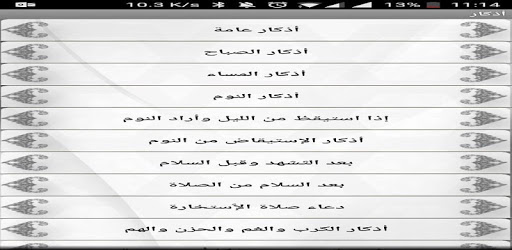 10.3 K/s 13% 11:14
أذكار
أذكار عامة
أذكار الصباح
أذكار المساء
أذكار النوم
إذا استيقظ من الليل وأراد النوم
أذكار الإستيقاض من النوم
بعد التشهد وقبل السلام
بعد السلام من الصلاة
دعاء صلاة الأستخارة
أذكار الكرب والغم والحزن والهم